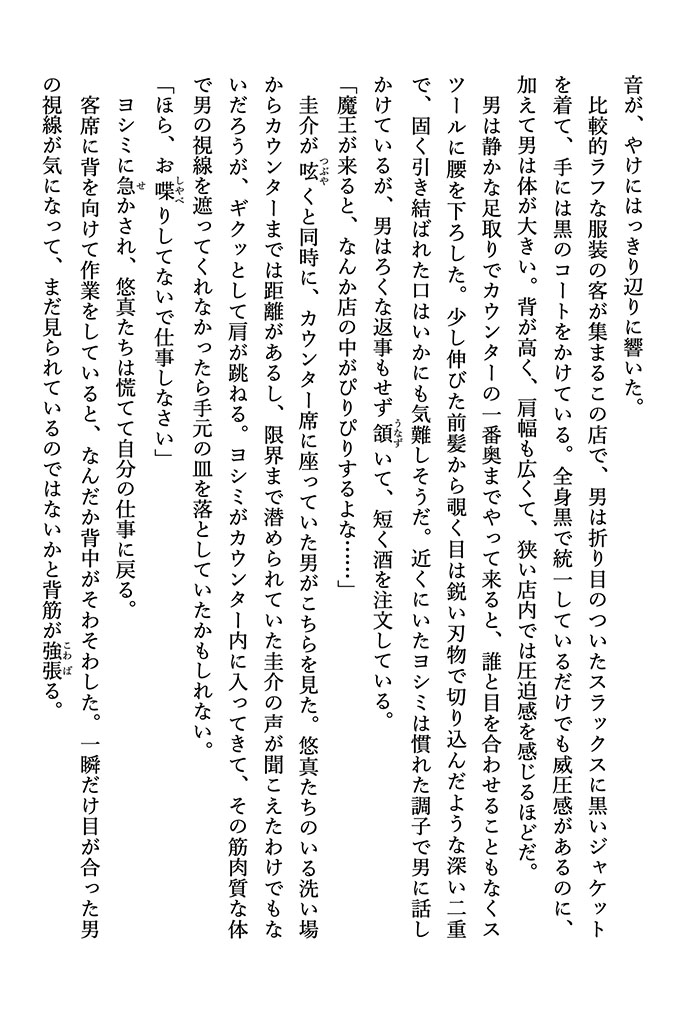 音が、やけにはっきり辺りに響いた。
　比較的ラフな服装の客が集まるこの店で、男は折り目のついたスラックスに黒いジャケット
を着て、手には黒のコートをかけている。全身黒で統一しているだけでも威圧感があるのに、
加えて男は体が大きい。背が高く、肩幅も広くて、狭い店内では圧迫感を感じるほどだ。
　男は静かな足取りでカウンターの一番奥までやって来ると、誰と目を合わせることもなくス
ツールに腰を下ろした。少し伸びた前髪から覗く目は鋭い刃物で切り込んだような深い二重
で、固く引き結ばれた口はいかにも気難しそうだ。近くにいたヨシミは慣れた調子で男に話し
かけているが、男はろくな返事もせず頷いて、短く酒を注文している。
「魔王が来ると、なんか店の中がぴりぴりするよな……」
　圭介が呟くと同時に、カウンター席に座っていた男がこちらを見た。悠真たちのいる洗い場
からカウンターまでは距離があるし、限界まで潜められていた圭介の声が聞こえたわけでもな
いだろうが、ギクッとして肩が跳ねる。ヨシミがカウンター内に入ってきて、その筋肉質な体
で男の視線を遮ってくれなかったら手元の皿を落としていたかもしれない。
「ほら、お喋りしてないで仕事しなさい」
　ヨシミに急かされ、悠真たちは慌てて自分の仕事に戻る。
　客席に背を向けて作業をしていると、なんだか背中がそわそわした。一瞬だけ目が合った男
の視線が気になって、まだ見られているのではないかと背筋が強張る。